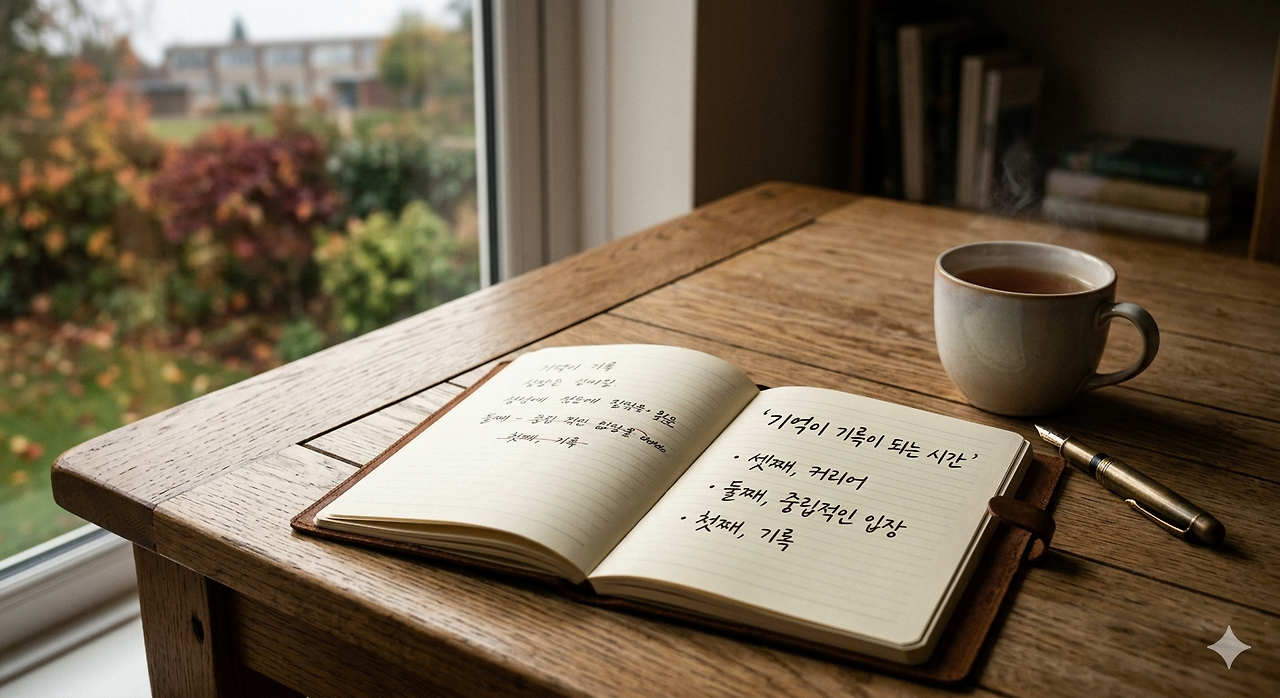 기억이 기록
둘째 - 중립 적인 입장을
첫째, 기록
'기억이 기록이 되는 시간'
• 셋째, 커리어
• 둘째, 중립적인 입장
• 첫째, 기록